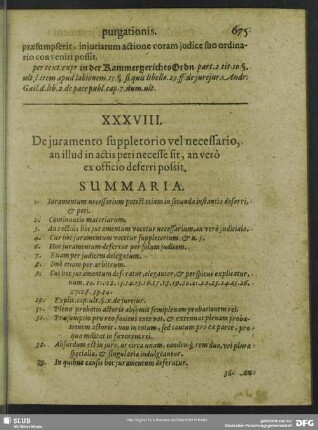 purgationis. 675
præsumpserit, iniuriarum actione coram judice suo ordina-
rio conveniri possit.
per text. expr. in der Kammergerichts Ordn. part. 2. tit. 10. §.
ult. f. item apud labionem. 15. §. si quis libello. 29. ff. de jurejur. Andr.
Gail. d. lib. 2. de pace publ. cap. 7. num. ult.
XXXVIII.
De juramento suppletorio vel necessario,
an illud in actis peti necesse sit, an verò
ex officio deferri possit.
SUMMARIA.
1. Iuramentum necessarium potest etiam in secunda instantia deferri,
& peti.
2. Continuatio materiarum.
3. An rectius hoc juramentum vocetur necessarium, an verò judiciale.
4. Cur hoc juramentum vocetur suppletorium. & n. 5.
6. Hoc juramentum defertur per solum judicem.
7. Etiam per judicem delegatum.
8. Imò etiam per arbitrum.
9. Cui hoc juramentum deferatur, eleganter, & perspicuè explicatur.
29. Explic. cap. ult. §. x. de jurejur.
30. Plena probatio actoris absumit semiplenam probationem rei.
31. Præsumptio pro reo faciens enervat, & extenuat plenam proba-
tionem actoris, non in totum, sed tantum pro ea parte, pro
qua militat in favorem rei.
32. Absurdum est in jure, ut circa unam, eandemq; rem duo, vel plura
specialia, & singularia indulgeantur.
35. In quibus causis hoc juramentum deferatur.
36. An
SLUB
Wir führen Wissen.
gefördert von der
Deutschen Forschungsgemeinschaft
DFG